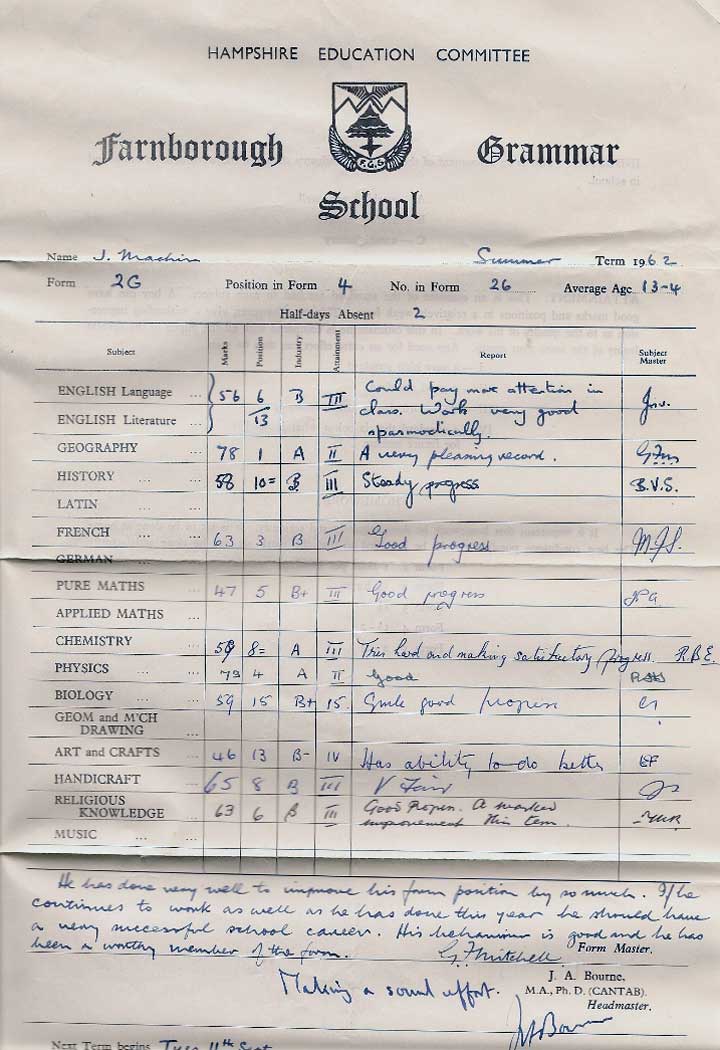 HAMPSHIRE EDUCATION COMMITTEE
F.G.S
Farnborough Grammar
School
Name J. Machin Summer Term 1962
Form 2G Position in Form 4 No. in Form 26 Average Age 13-4
Half-days Absent 2
Subject Marks Position Industry Attainment Report Subject Master
ENGLISH Language ... 56 6 B III Could pay more attention in
ENGLISH Literature ... 13 class. Work very good
spasmodically.
GEOGRAPHY ... ... 78 1 A II A very pleasing record. G.F.M
HISTORY ... ... 58 10= B III Steady progress B.V.S.
LATIN ... ... ...
FRENCH ... ... 63 3 B III Good progress M.J.S.
GERMAN ... ...
PURE MATHS ... 47 5 B+ III Good progress
APPLIED MATHS ...
CHEMISTRY ... 59 8= A III Tries hard and making satisfactory progress. R.B.E.
PHYSICS ... ... 79 4 A II Good
BIOLOGY ... ... 59 15 B+ 15 Quite good progress
GEOM and M'CH
DRAWING ...
ART and CRAFTS ... 46 13 B- IV Has ability to do better
HANDICRAFT ... 65 8 B III V Fair
RELIGIOUS
KNOWLEDGE ... 63 6 B III Good Progress. A marked
improvement this term.
MUSIC ... ... ...
He has done very well to improve his form position by so much. If he
continues to work as well as he has done this year he should have
a very successful school career. His behaviour is good and he has
been a worthy member of the form. G. F. Mitchell Form Master.
Making a sound effort.
J. A. Bourne,
M.A., Ph. D. (CANTAB).
Headmaster.
Next Term begins Tues 11th Sept